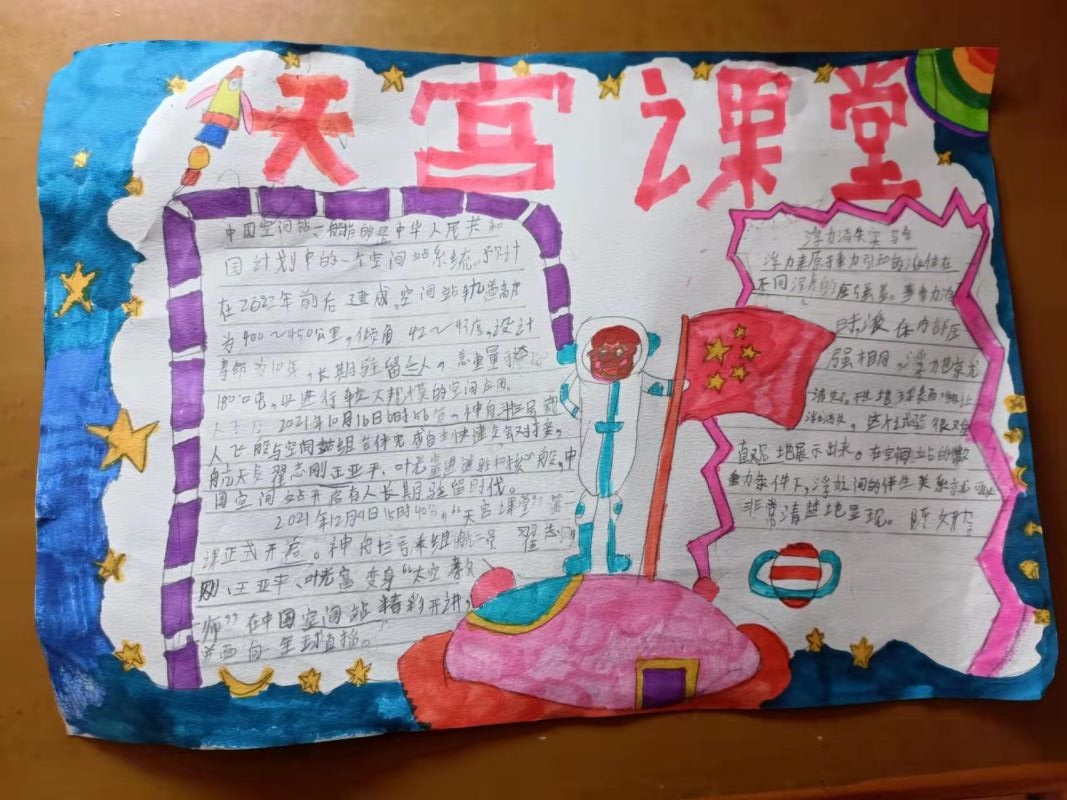 天宫课堂
中国空间站一般指的是中华人民共和
国计划中的一个空间站系统。预计
在2022年前后建成。空间站轨道高度
为400~450公里,倾角42~43度,设计
寿命为10年,长期驻留三人,总重量可达
180吨,以进行较大规模的空间应用。
2021年10月16日6时56分,神舟十三号载
人飞船与空间站组合体完成自主快速交会对接,
航天员翟志刚、王亚平、叶光富进驻核心舱,中
国空间站开启有人长期驻留时代。
2021年12月9日15时40分,“天宫课堂”第一
课正式开启。神舟十三号乘组航天员翟志
刚、王亚平、叶光富变身“太空教
师”在中国空间站精彩开讲,
并面向全球直播。
浮力消失实验
浮力来源于重力引起的液体在
不同深度的压强差。
时液体内部压
强相同,浮力也就
消失
直观地展示出来。在空间站的微
重力条件下,
非常清楚地呈现。